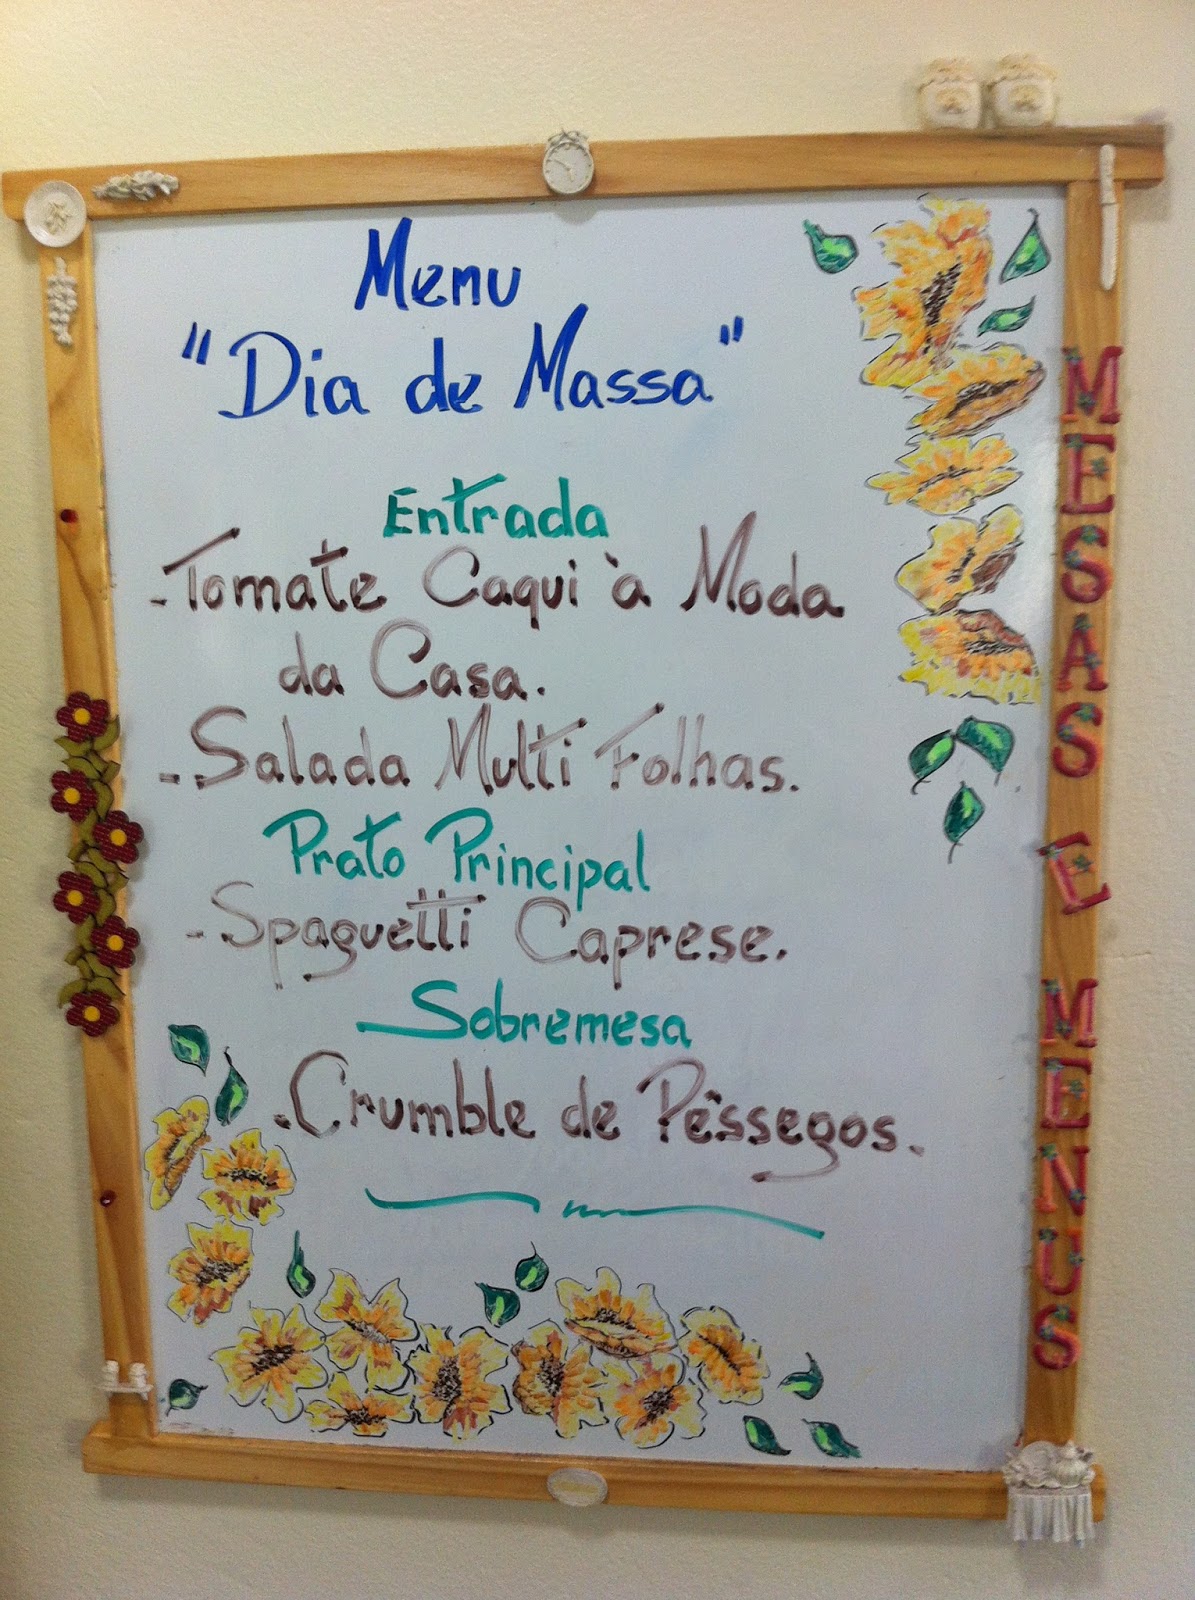 Menu
"Dia de Massa"
Entrada
-Tomate Caqui à Moda
da Casa.
-Salada Multi Folhas.
Prato Principal
-Spaguetti Caprese.
Sobremesa
-Crumble de Pêssegos.
MESAS E MENUS